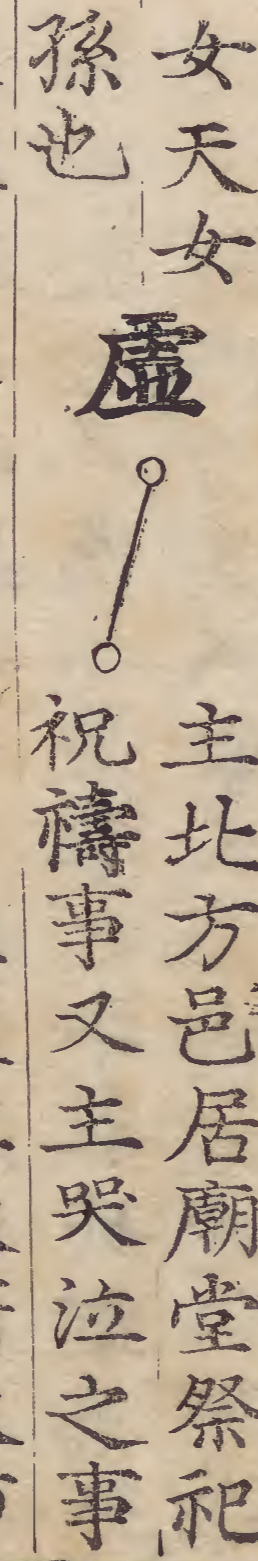 女天女
孫也
虛
主北方邑居廟堂祭祀
祝禱事又主哭泣之事